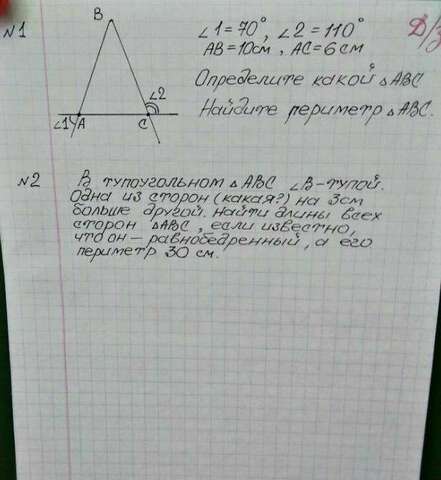 №1
∠1=70°, ∠2=110°
AB=10см, AC=6см
Определите какой △ABC
Найдите периметр △ABC.
Д/з
B
∠2
∠1 A
C
№2 В тупоугольном △ABC ∠B-тупой.
Одна из сторон (какая?) на 3см
больше другой. Найти длины всех
сторон △ABC, если известно,
что он – равнобедренный, а его
периметр 30 см.